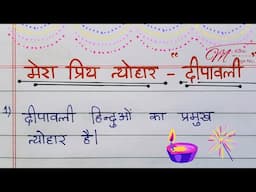 "मेरा प्रिय त्योहार - दीपावली"
1) दीपावली हिन्दुओं का प्रमुख
त्योहार है।